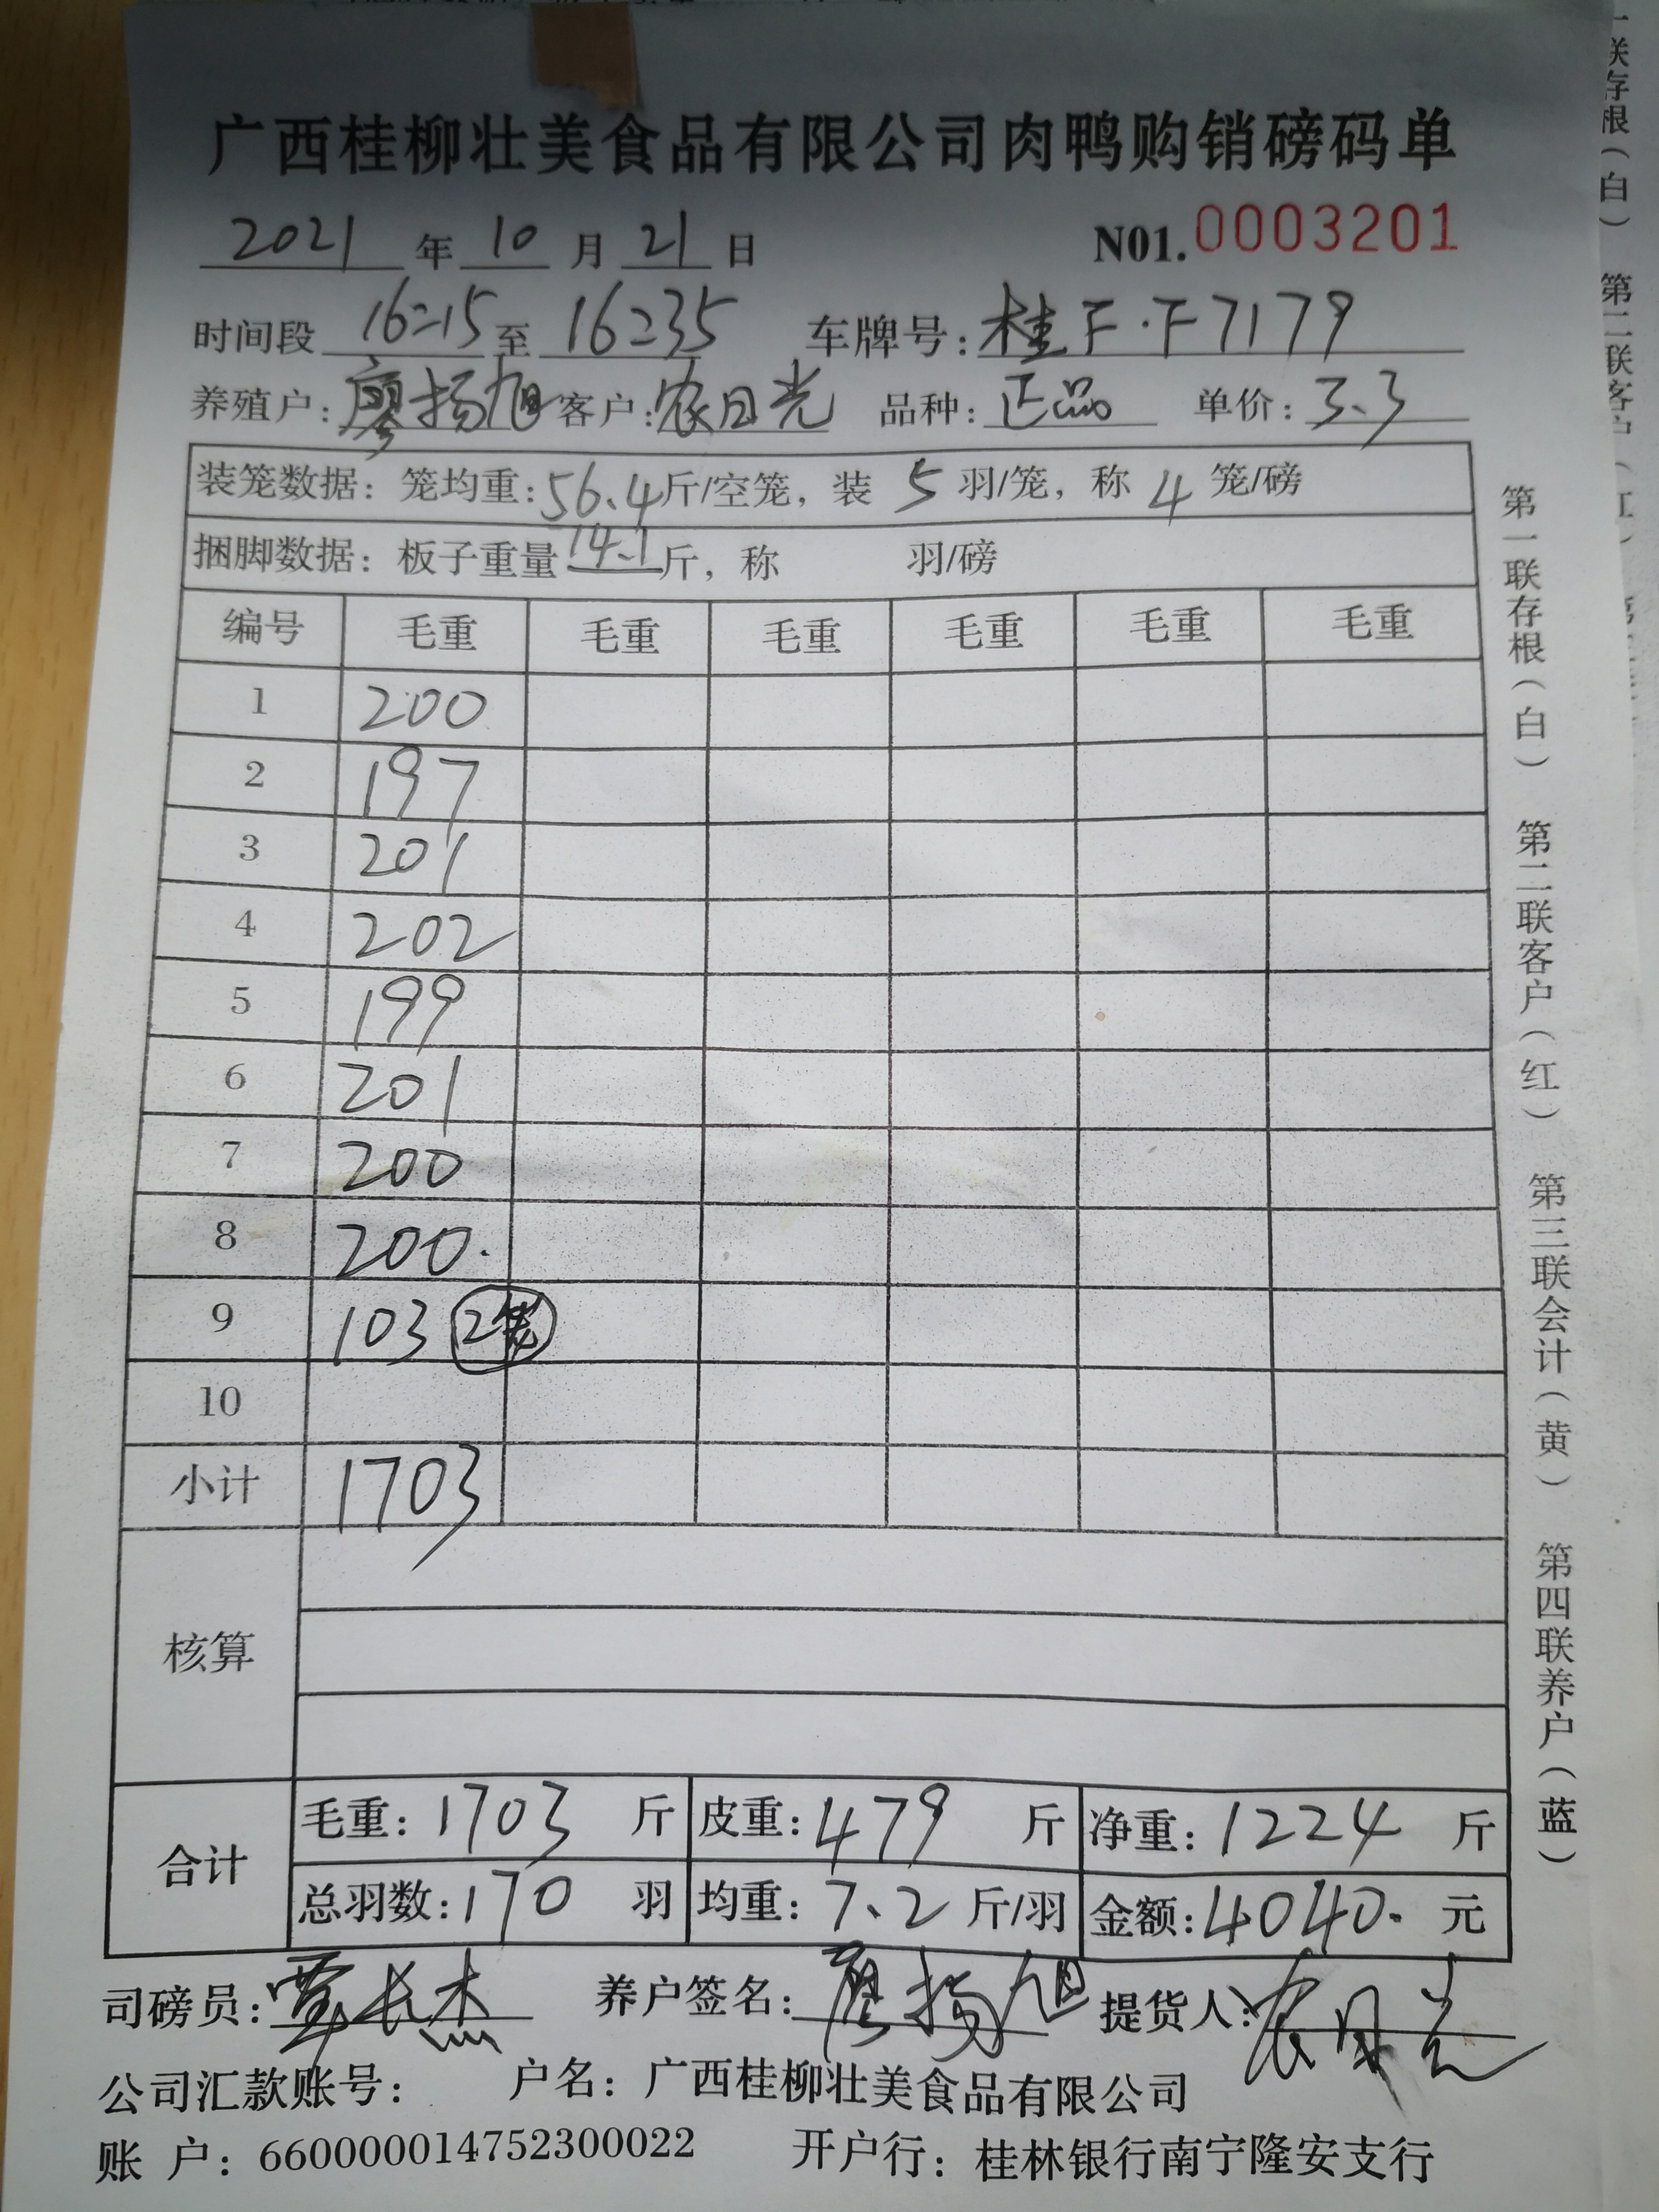 广西桂柳壮美食品有限公司肉鸭购销磅码单
2021 年 10 月 21 日 N01. 0003201
时间段 16:15 至 16:35 车牌号: 桂F·F7179
养殖户: 廖扬旭 客户: 农日光 品种: 正品 单价: 3.3
装笼数据: 笼均重: 56.4 斤/空笼, 装 5 羽/笼, 称 4 笼/磅
捆脚数据: 板子重量 14.1 斤, 称 羽/磅
编号 毛重 毛重 毛重 毛重 毛重 毛重
1 200
2 197
3 201
4 202
5 199
6 201
7 200
8 200.
9 103 2笼
10
小计 1703
核算
合计 毛重: 1703 斤 皮重: 479 斤 净重: 1224 斤
总羽数: 170 羽 均重: 7.2 斤/羽 金额: 4040. 元
司磅员: 覃长杰 养户签名: 廖扬旭 提货人: 农日光
公司汇款账号: 户名: 广西桂柳壮美食品有限公司
账 户: 660000014752300022 开户行: 桂林银行南宁隆安支行
第一联存根(白) 第二联客户(红) 第三联会计(黄) 第四联养户(蓝)
联存根(白) 第二联客户